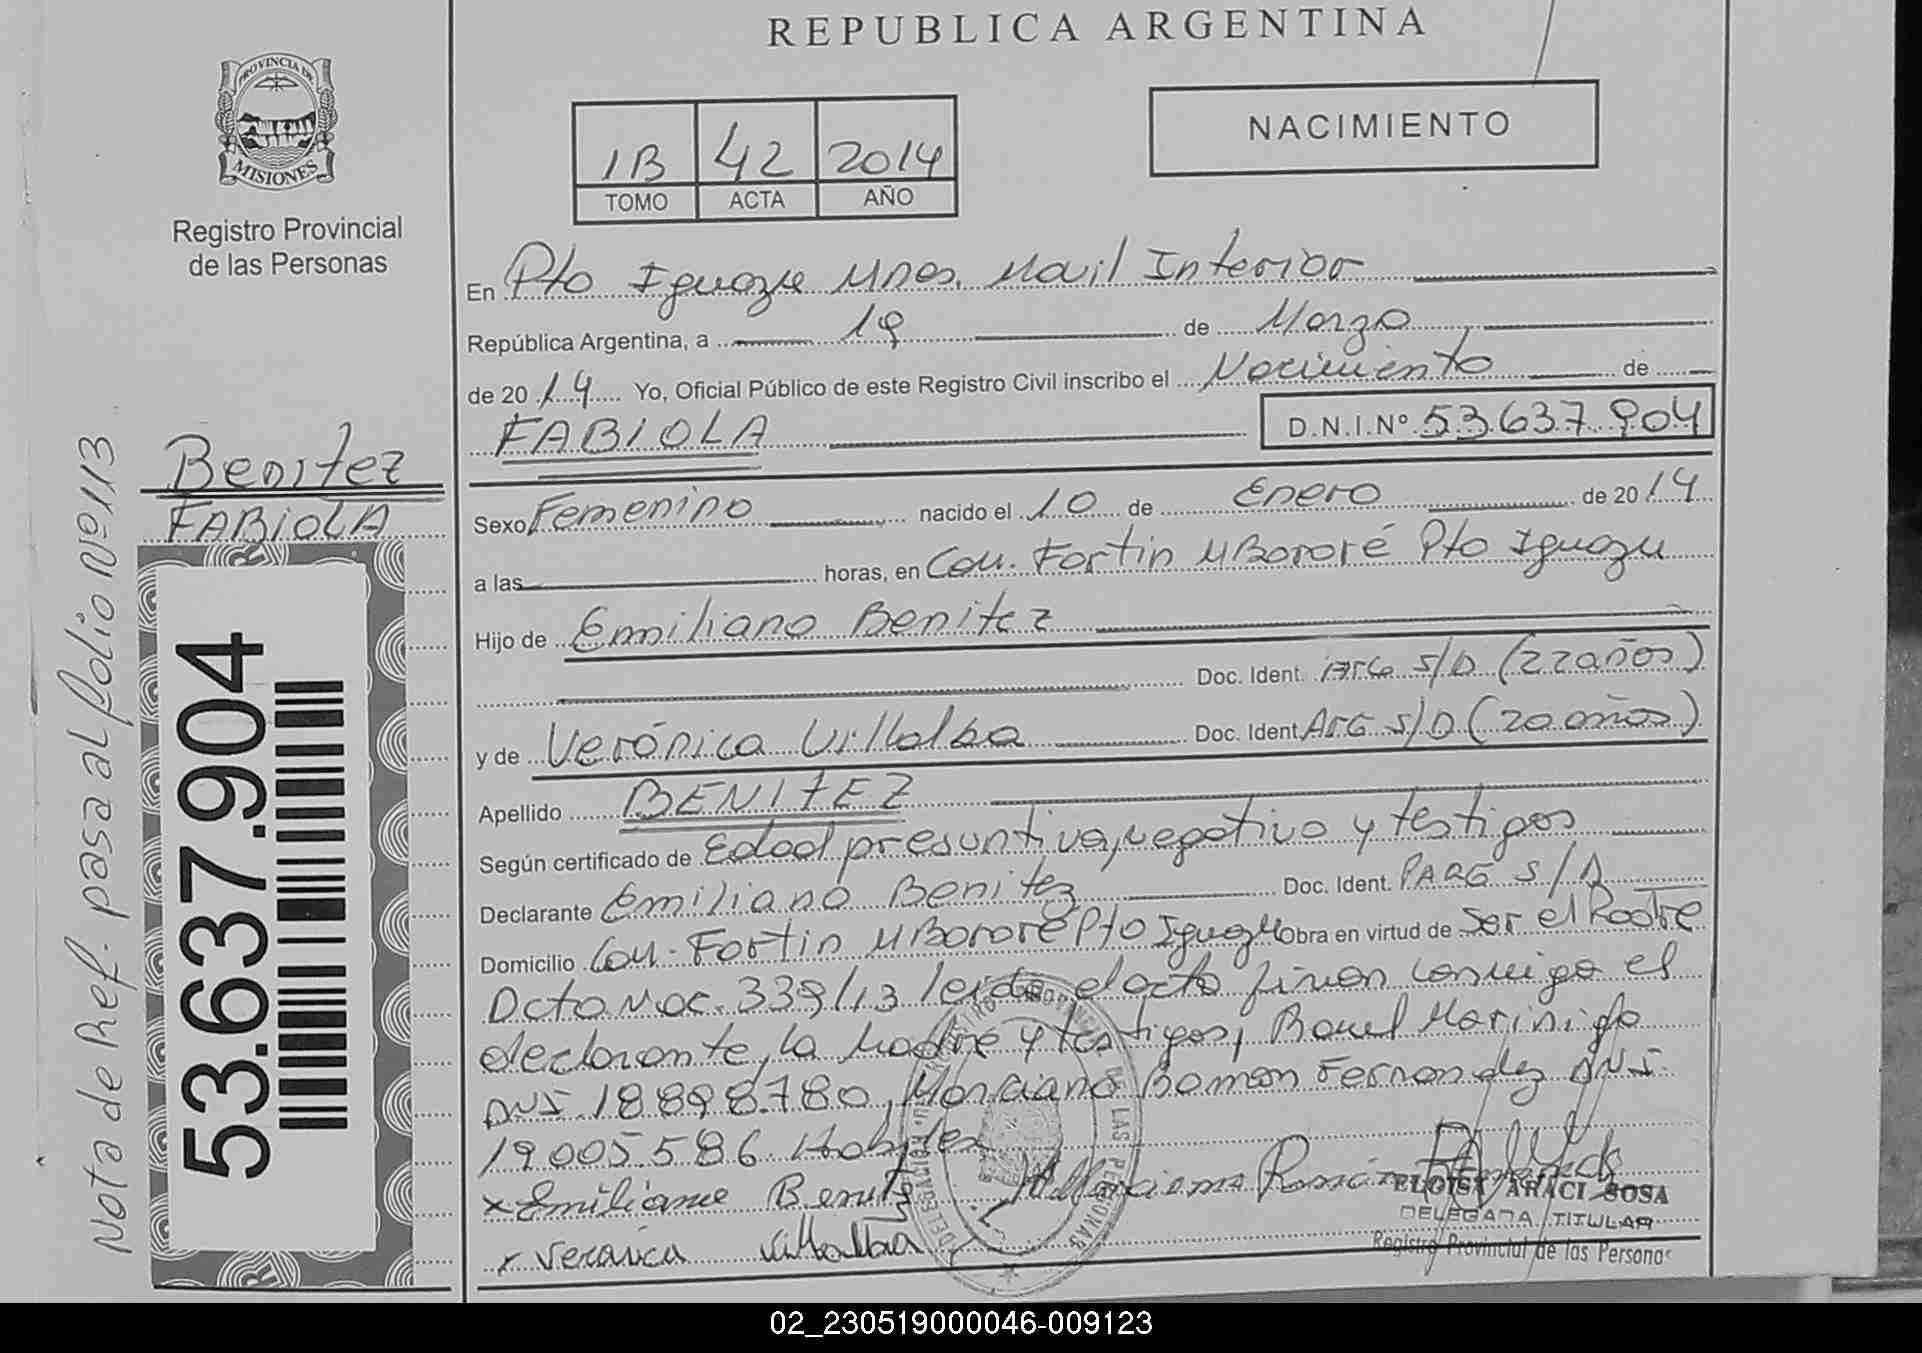 REPUBLICA ARGENTINA
PROVINCIA DE
MISIONES
Registro Provincial
de las Personas
1B 42 2014
TOMO ACTA AÑO
NACIMIENTO
En Pto Iguazu Mnes. Movil Interior
República Argentina, a 19 de Marzo
de 2014 Yo, Oficial Público de este Registro Civil inscribo el Nacimiento de
FABIOLA D.N.I.Nº 53.637.904
Benitez
FABIOLA
53.637.904
Nota de Ref. pasa al folio Nº 113
Sexo Femenino nacido el 10 de Enero de 2014
a las horas, en Com. Fortin MBororé Pto Iguazu
Hijo de Emiliano Benitez
Doc. Ident. ARG S/D (22 años)
y de Verónica Villalba Doc. Ident. ARG S/D (20 años)
Apellido BENITEZ
Según certificado de Edad presuntiva, negativo y testigos
Declarante Emiliano Benitez Doc. Ident. ARG S/D
Domicilio Com. Fortin MBororé Pto Iguazu Obra en virtud de Ser el Padre
Dcto Nac. 339/13 leida el acta firman conmigo el
declarante, la madre y testigos, Marinigo
DNI 18898780, Marciano Ramon Fernandez DNI
19005.586 Habiles
x Emiliano Benitez
x Veronica Villalba
ELOISA ARACI SOSA
DELEGADA TITULAR
Registro Provincial de las Personas
02_230519000046-009123